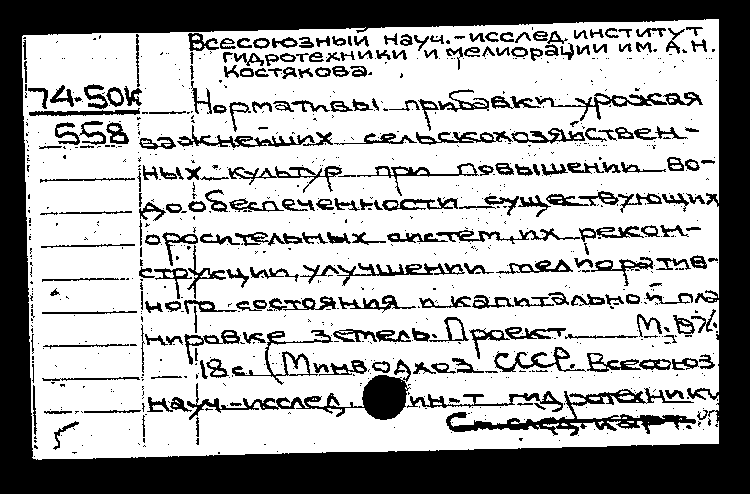 Всесоюзный науч.-исслед. институт
гидротехники и мелиорации им. А. Н.
Костякова.
74-50к
558
Нормативы прибавки урожая
важнейших сельскохозяйствен-
ных культур при повышении во-
дообеспеченности существующих
оросительных систем, их рекон-
струкции, улучшении мелиоратив-
ного состояния и капитальной пла
нировке земель. Проект. М.
18с. (Минводхоз СССР. Всесоюз
науч.-исслед. ин-т гидротехники
См. след. карт.